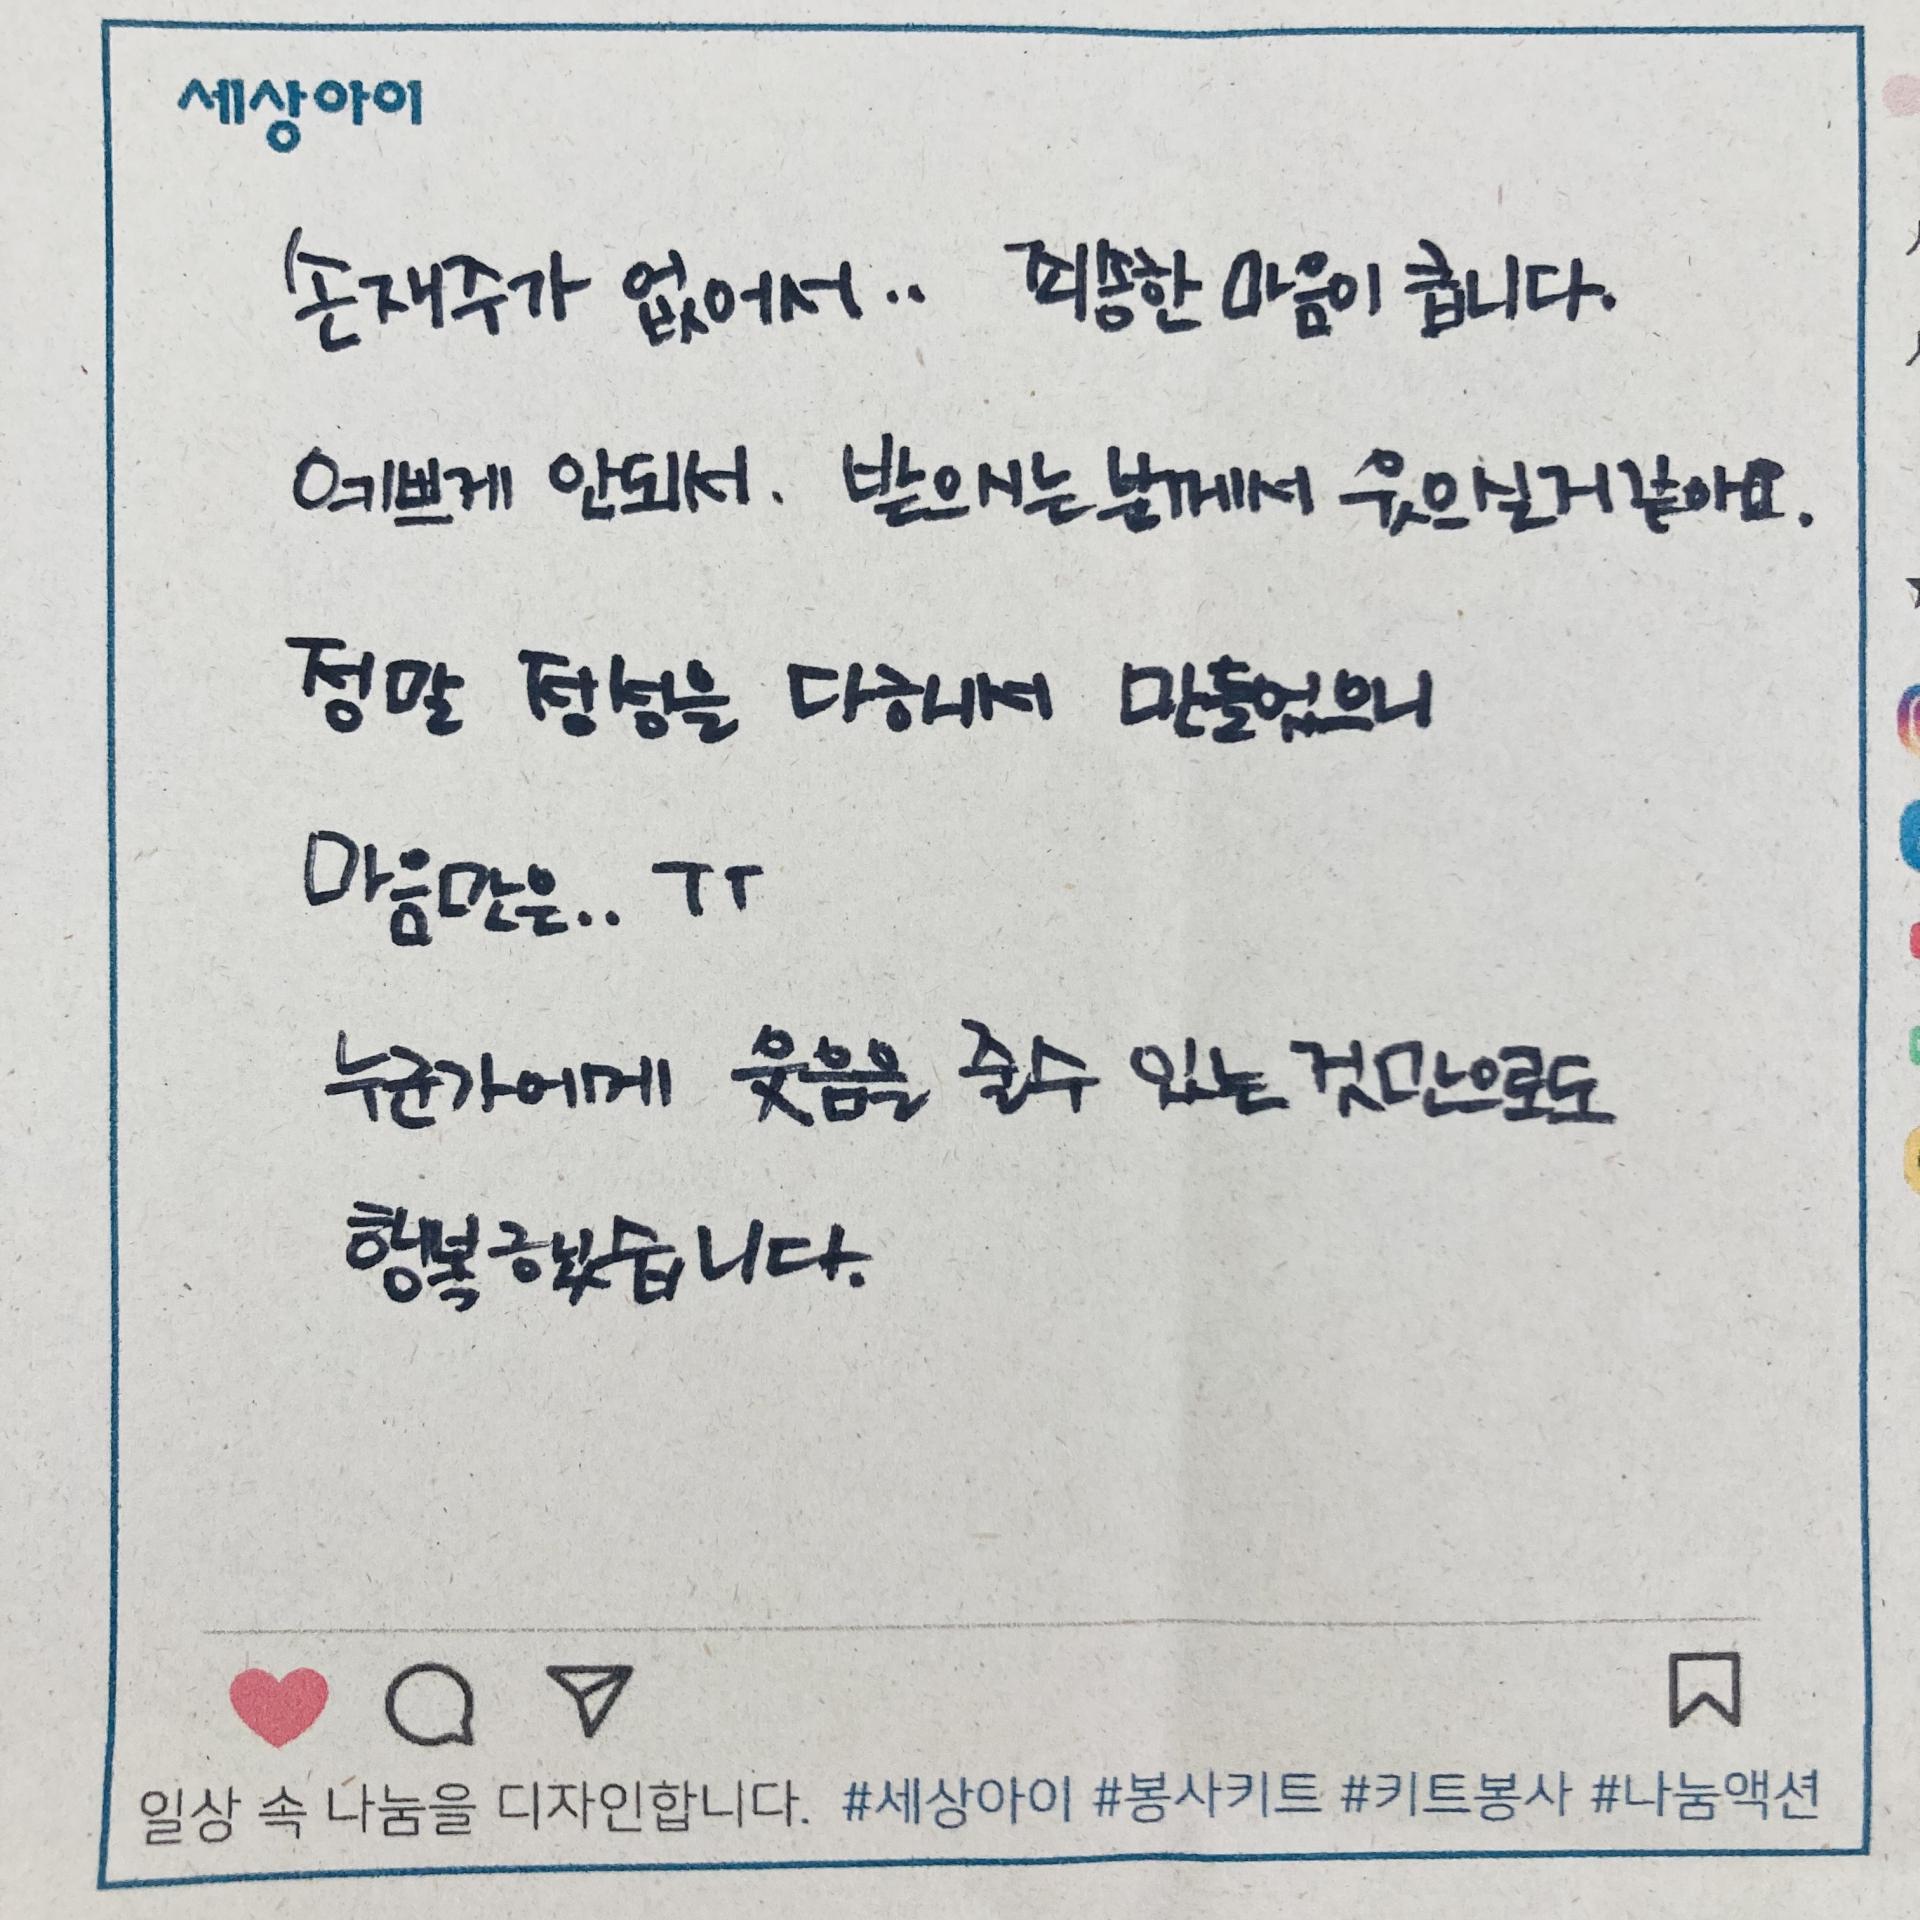 세상아이
손재주가 없어서.. 죄송한 마음이 큽니다.
예쁘게 안되서. 받으시는분께서 웃으실거같아요.
정말 정성을 다해서 만들었으니
마음만은.. ㅜㅜ
누군가에게 웃음을 줄수 있는것만으로도
행복했습니다.
일상 속 나눔을 디자인합니다. #세상아이 #봉사키트 #키트봉사 #나눔액션